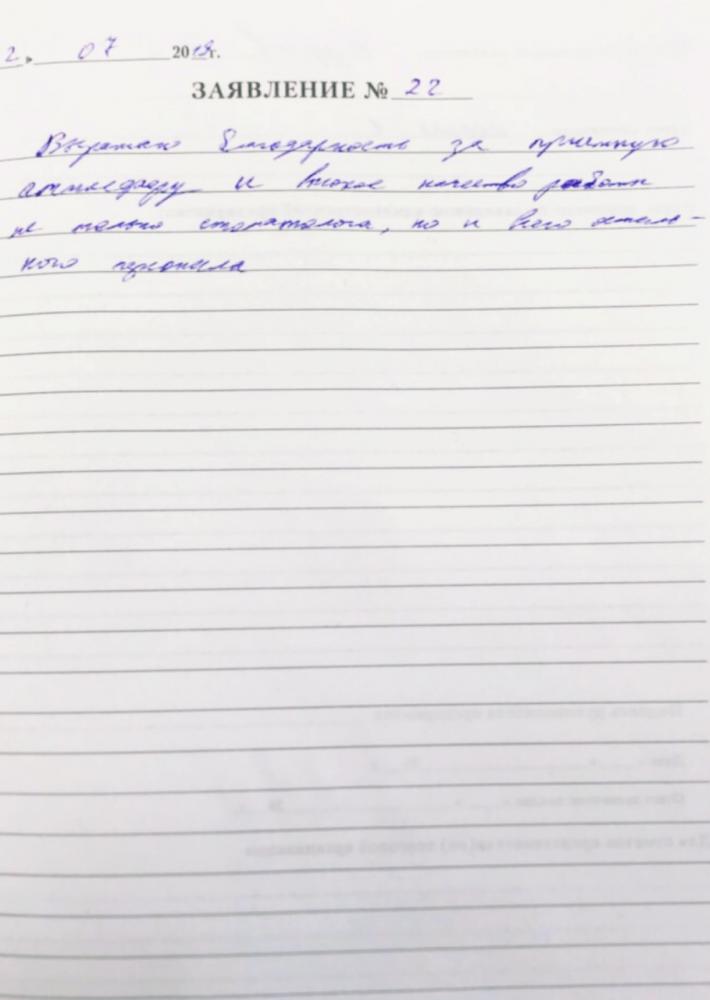 2 » 07 2018г.
ЗАЯВЛЕНИЕ № 22
Выражаю благодарность за приятную
атмосферу и высокое качество работы
не только стоматолога, но и всего осталь-
ного персонала